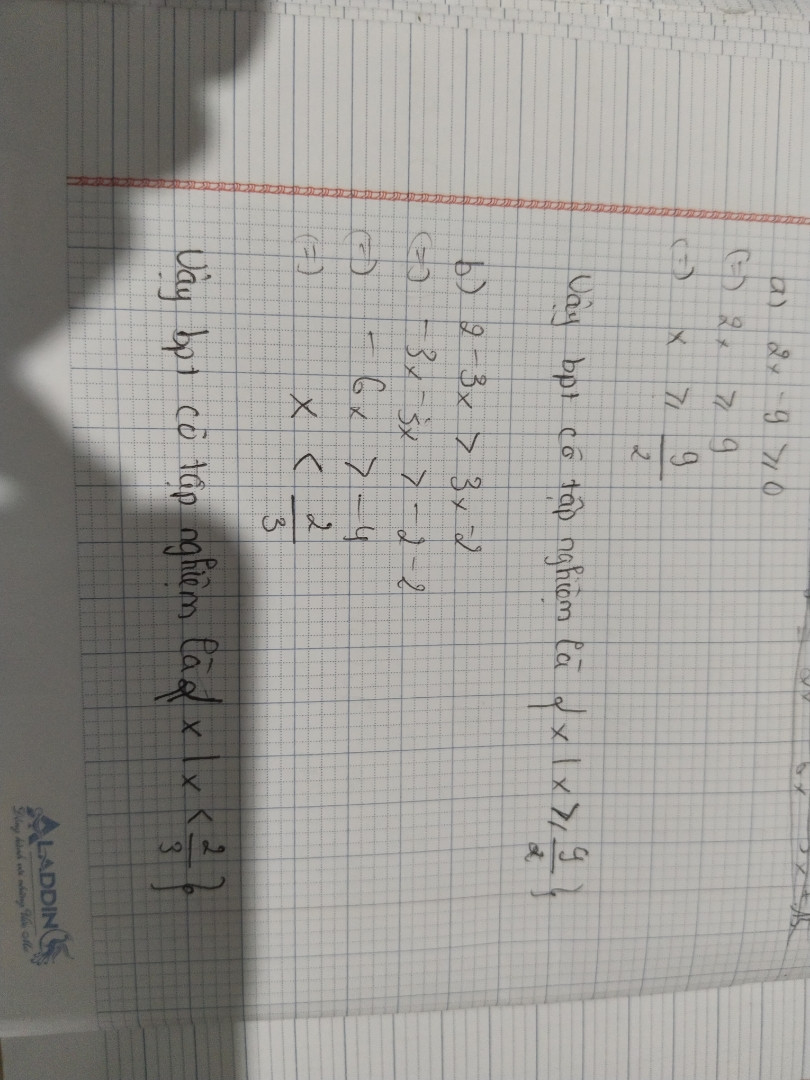 a) 2x - 9 ⩾ 0
(=) 2x ⩾ 9
(=) x ⩾ 9/2
Vậy bpt có tập nghiệm là { x | x ⩾ 9/2 }
b) 2 - 3x > 3x - 2
(=) -3x - 3x > -2 - 2
(=) - 6x > -4
(=) x < 2/3
Vậy bpt có tập nghiệm là { x | x < 2/3 }
ALADDIN